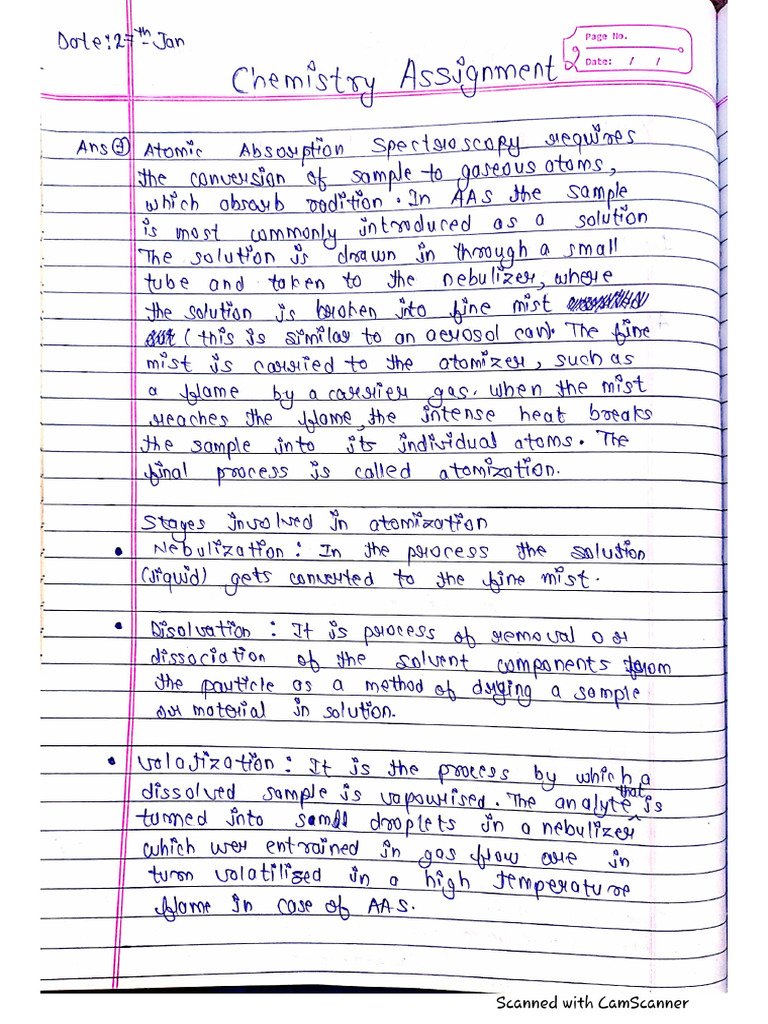 Date: 27th Jan
Page No.
Date: / /
Chemistry Assignment
Ans ① Atomic Absorption Spectroscopy requires
the conversion of sample to gaseous atoms,
which absorb radition. In AAS the sample
is most commonly introduced as a solution
The solution is drawn in through a small
tube and taken to the nebulizer, where
the solution is broken into fine mist
(this is similar to an aerosol can). The fine
mist is carried to the atomizer, such as
a flame by a carrier gas. when the mist
reaches the flame, the intense heat breaks
the sample into its individual atoms. The
final process is called atomization.
Stages involved in atomization
• Nebulization: In the process the solution
(liquid) gets converted to the fine mist.
• Disolvation: It is process of removal or
dissociation of the solvent components from
the particle as a method of drying a sample
or material in solution.
• Volatization: It is the process by which a
dissolved sample is vapourised. The analyte is
turned into small droplets in a nebulizer that
which wer entrained in gas flow are in
turn volatilized in a high temperature
flame in case of AAS.
Scanned with CamScanner